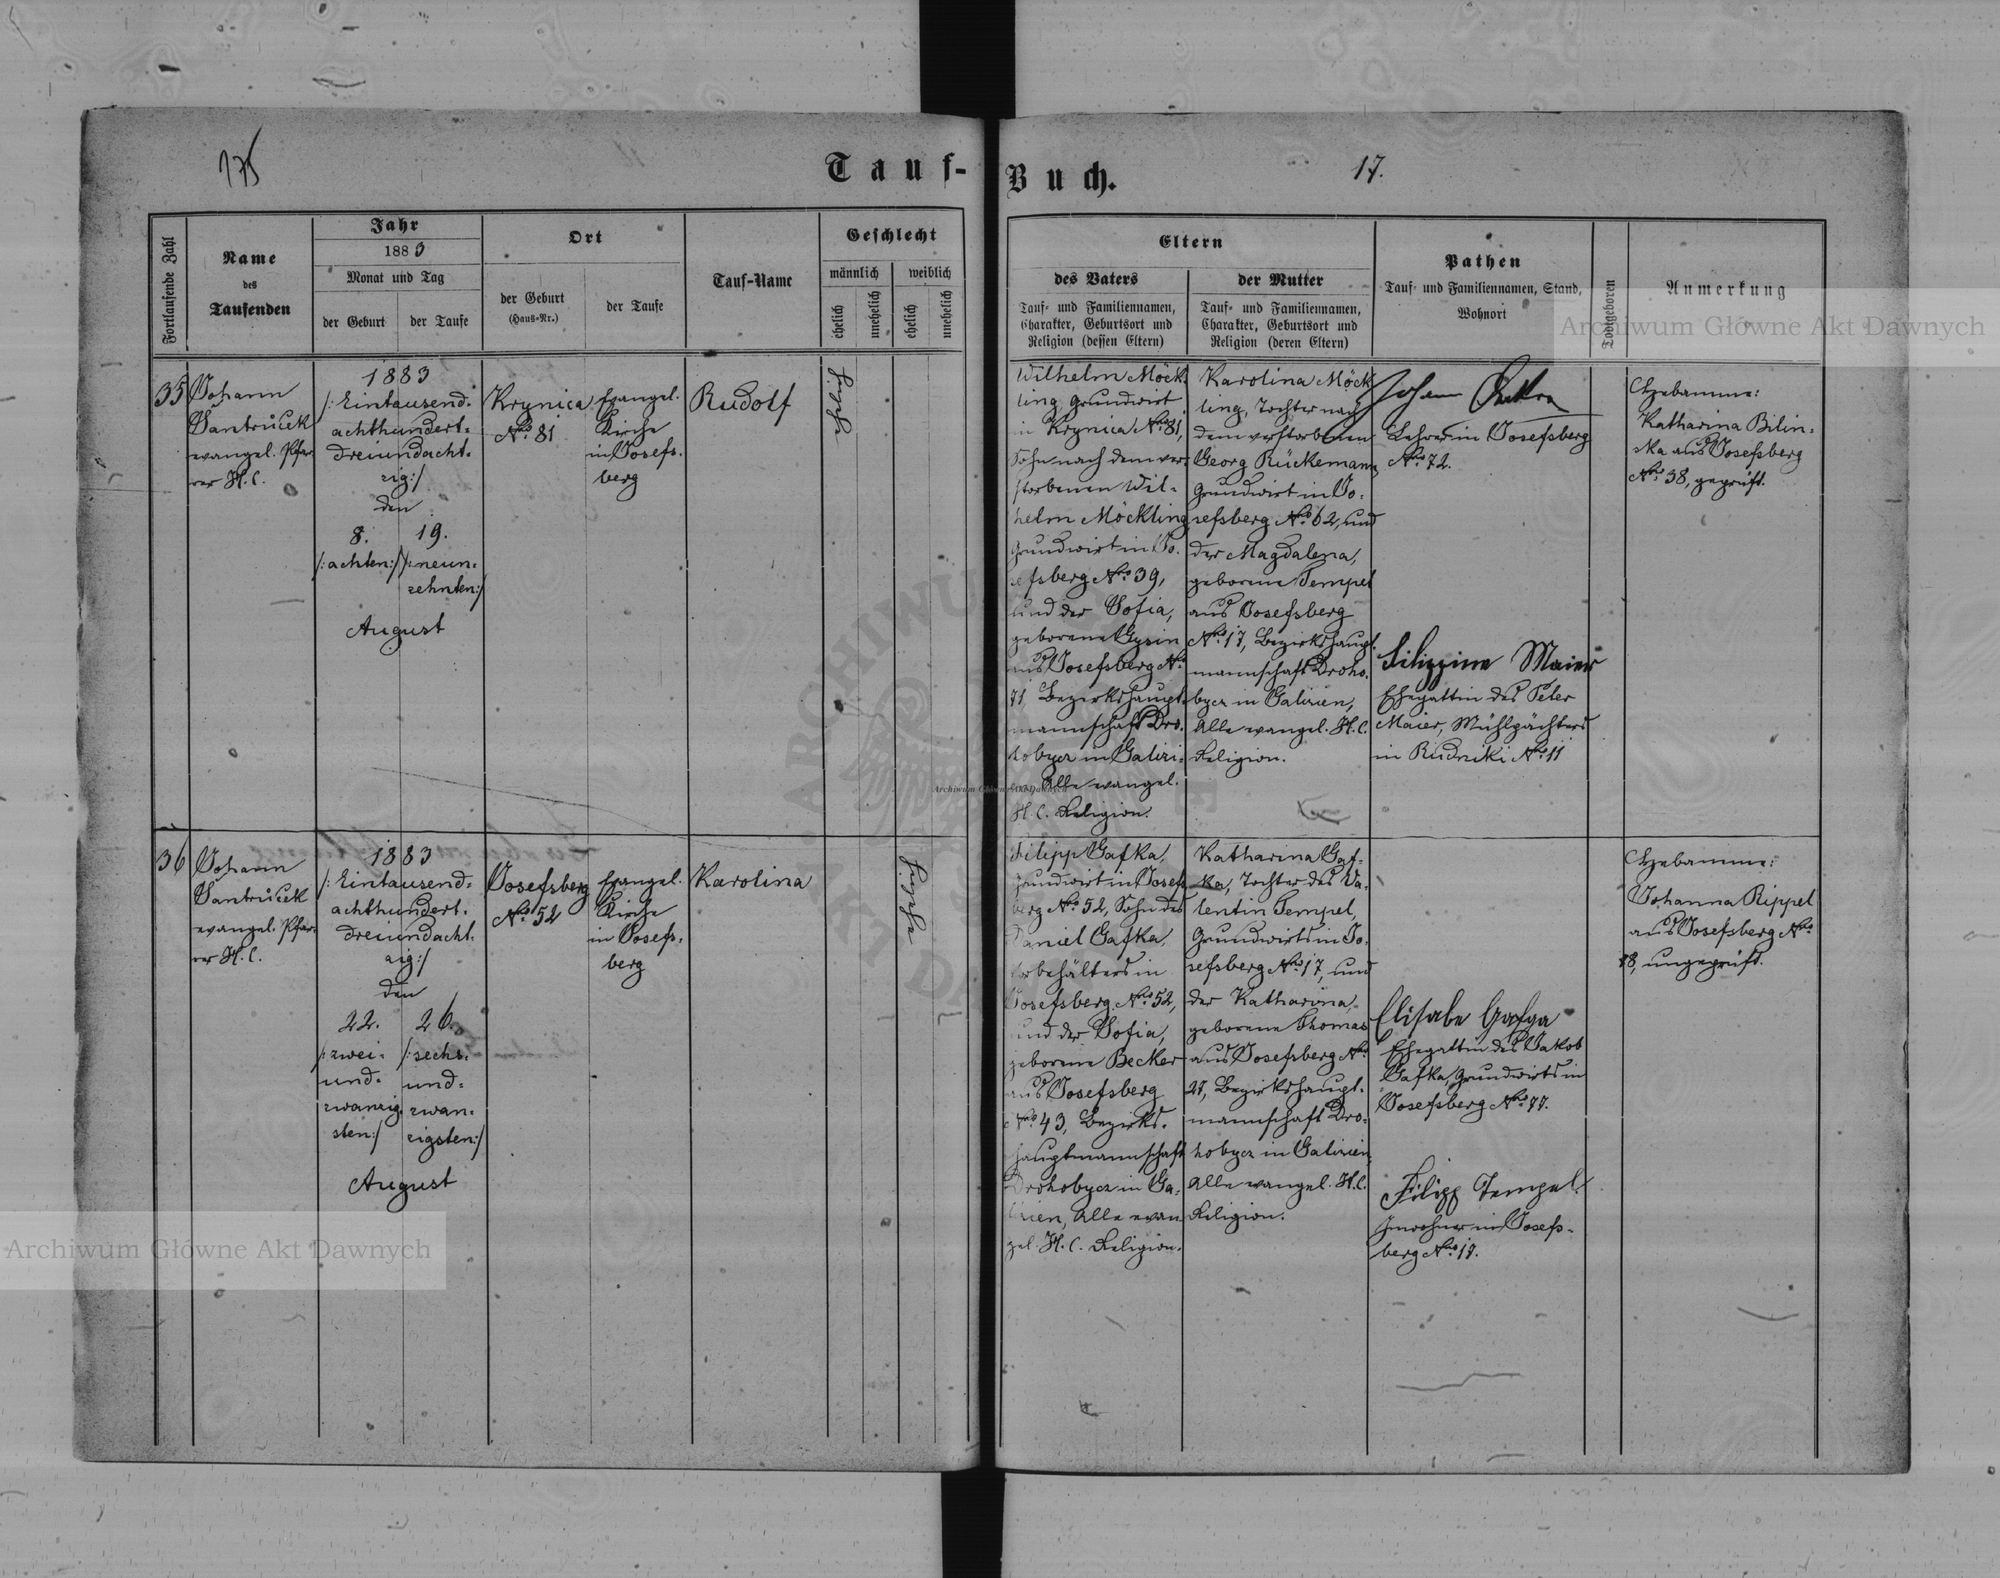 175
Tauf-
Buch.
17.
Fortlaufende Zahl
Name
des
Taufenden
Jahr
1883
Monat und Tag
der Geburt
der Taufe
Ort
der Geburt
(Haus-Nr.)
der Taufe
Tauf-Name
Geschlecht
männlich
weiblich
ehelich
unehelich
ehelich
unehelich
Eltern
des Vaters
Tauf- und Familiennamen,
Charakter, Geburtsort und
Religion (dessen Eltern)
der Mutter
Tauf- und Familiennamen,
Charakter, Geburtsort und
Religion (deren Eltern)
Pathen
Tauf- und Familiennamen, Stand,
Wohnort
Todtgeboren
Anmerkung
35
Johann
Jantrůček
evangel. Pfar-
rer H. C.
1883
/: Eintausend-
achthundert-
dreiundacht-
zig :/
den
8.
/: achten :/
19.
/: neun-
zehnten :/
August
Krynica
Nro 81
Evangel.
Kirche
in Josefs-
berg
Rudolf
Wilhelm Möck-
ling, Grundwirt
in Krynica Nro 81,
Sohn nach dem ver-
storbenen Wil-
helm Möckling,
Grundwirt in Jo-
sefsberg Nro 39,
und der Sofia,
geborene
aus Josefsberg Nro
71, Bezirkshaupt-
mannschaft Dro-
hobycz in Galizi-
en, Alle evangel.
H. C. Religion.
Karolina Möck-
ling, Tochter nach
dem verstorbenen
Georg Rückemann,
Grundwirt in Jo-
sefsberg Nro 62, und
der Magdalena,
geborene Tempel
aus Josefsberg
Nro 17, Bezirkshaupt-
mannschaft Droho-
bycz in Galizien,
Alle evangel. H. C.
Religion.
Johann
Lehrer in Josefsberg
Nro 72.
Filippine Maier
Ehegattin des Peter
Maier, Mühlpächters
in Rudniki Nro 11
Hebamme:
Katharina Bilin-
ska aus Josefsberg
Nro 38, geprüft.
36
Johann
Jantrůček
evangel. Pfar-
rer H. C.
1883
/: Eintausend-
achthundert-
dreiundacht-
zig :/
den
22.
/: zwei-
und-
zwanzig-
sten :/
26.
/: sechs-
und-
zwan-
zigsten :/
August
Josefsberg
Nro 52
Evangel.
Kirche
in Josefs-
berg
Karolina
Filipp Gafka,
Grundwirt in Josefs-
berg Nro 52, Sohn des
Daniel Gafka,
Vorbehälters in
Josefsberg Nro 52,
und der Sofia,
geborene Becker
aus Josefsberg
Nro 43, Bezirks-
hauptmannschaft
Drohobycz in Ga-
lizien, Alle evan-
gel. H. C. Religion.
Katharina Gaf-
ka, Tochter des Va-
lentin Tempel,
Grundwirts in Jo-
sefsberg Nro 17, und
der Katharina,
geborene Thomas
aus Josefsberg Nro
27, Bezirkshaupt-
mannschaft Dro-
hobycz in Galizien,
Alle evangel. H. C.
Religion.
Elisabe Gafga
Ehegattin des Jakob
Gafka, Grundwirts in
Josefsberg Nro 77.
Filipp Tempel
Inwohner in Josefs-
berg Nro 17.
Hebamme:
Johanna Rippel
aus Josefsberg Nro
ungeprüft.
Archiwum Główne Akt Dawnych
Archiwum Główne Akt Dawnych
Archiwum Główne Akt Dawnych